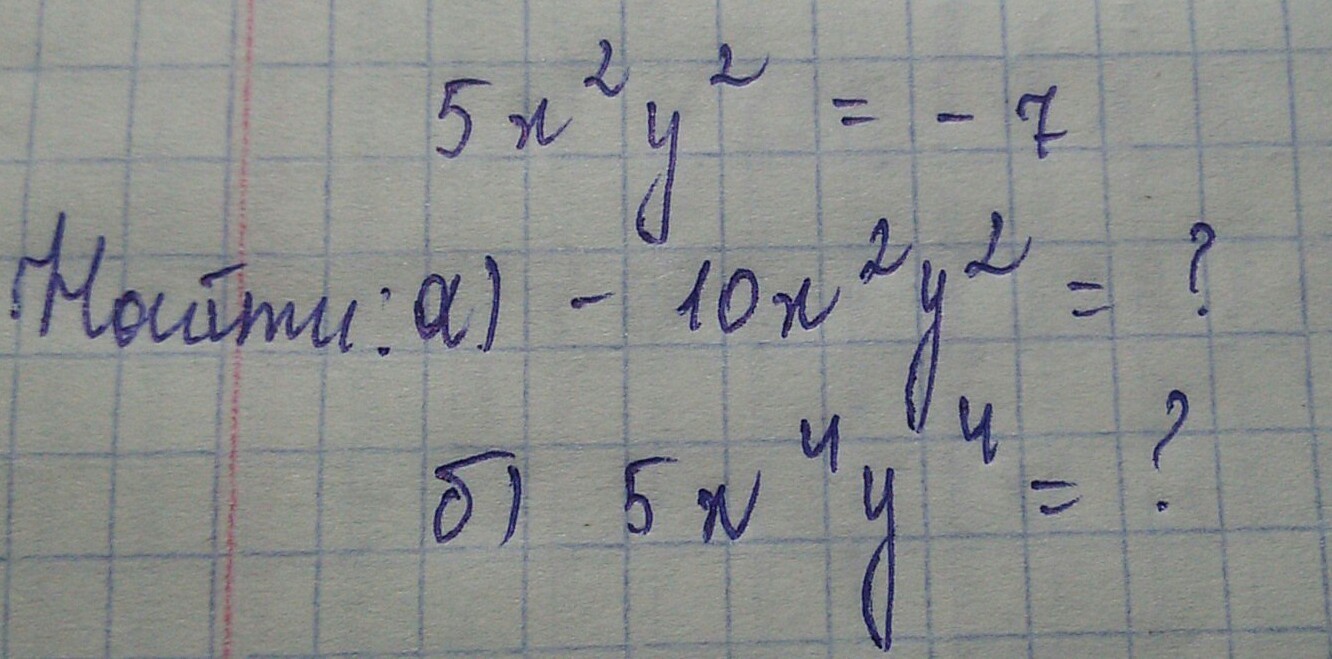 5x²y² = - 7
Найти: а) - 10x²y² = ?
б) 5x⁴y⁴ = ?